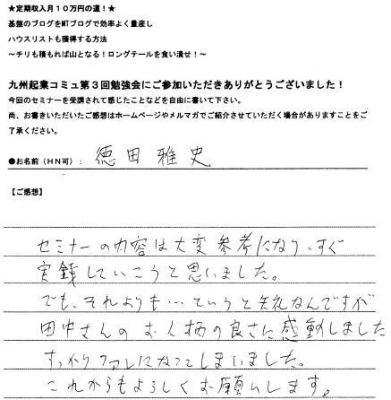 ★定期収入月１０万円の道！★
基盤のブログをMTブログで効率よく量産し
ハウスリストも獲得する方法
～チリも積もれば山となる！ロングテールを食い潰せ！～
九州起業コミュ第３回勉強会にご参加いただきありがとうございました！
今回のセミナーを受講されて感じたことなどを自由に書いて下さい。
尚、お書きいただいたご感想はホームページやメルマガでご紹介させていただく場合がありますことをご
了承ください。
●お名前（ＨＮ可）： 德田 雅史
【ご感想】
セミナーの内容は大変参考になり、すぐ
実践していこうと思いました。
でも、それよりも…というと失礼なんですが
田中さんのお人柄の良さに感動しました
すっかりファンになってしまいました。
これからもよろしくお願いします。